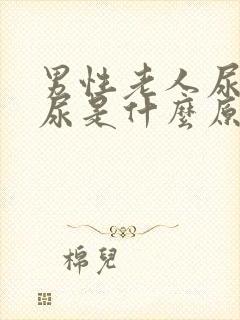 男性老人尿
尿是什麼原
棉兒